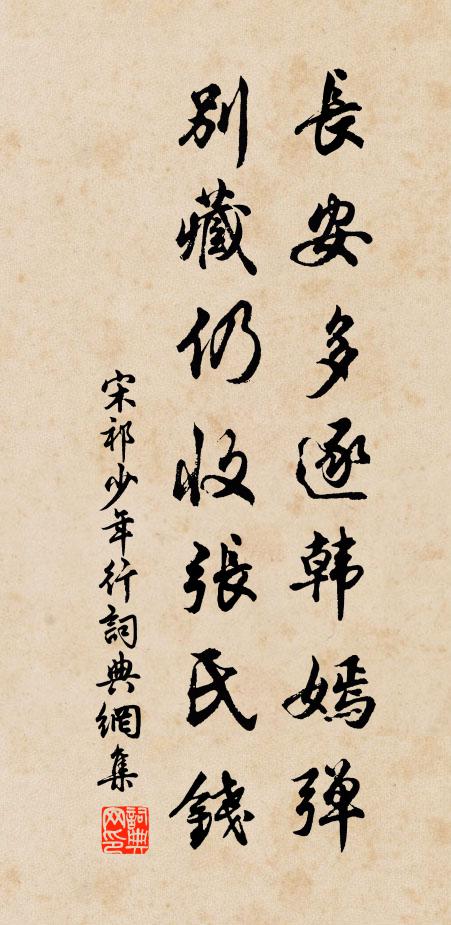 長安多逐韩嫣弹
別藏仍收張氏錢
宋祁少年行詞典網集
詞典网印